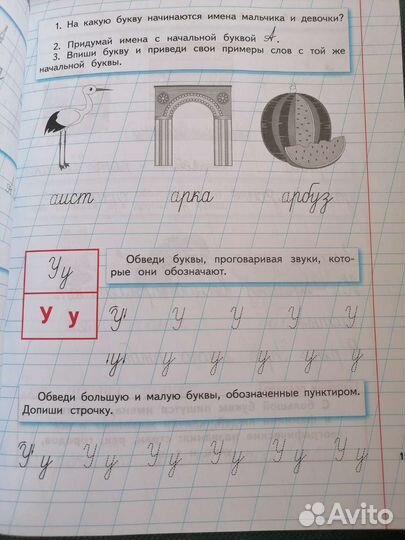 1. На какую букву начинаются имена мальчика и девочки?
2. Придумай имена с начальной буквой А.
3. Впиши букву и приведи свои примеры слов с той же
начальной буквы.
аист арка арбуз
У у
Обведи буквы, проговаривая звуки, кото-
рые они обозначают.
У у
У У У У У
у у у у у у
Обведи большую и малую буквы, обозначенные пунктиром.
Допиши строчку.
У у У у У у У у У у У у
Avito